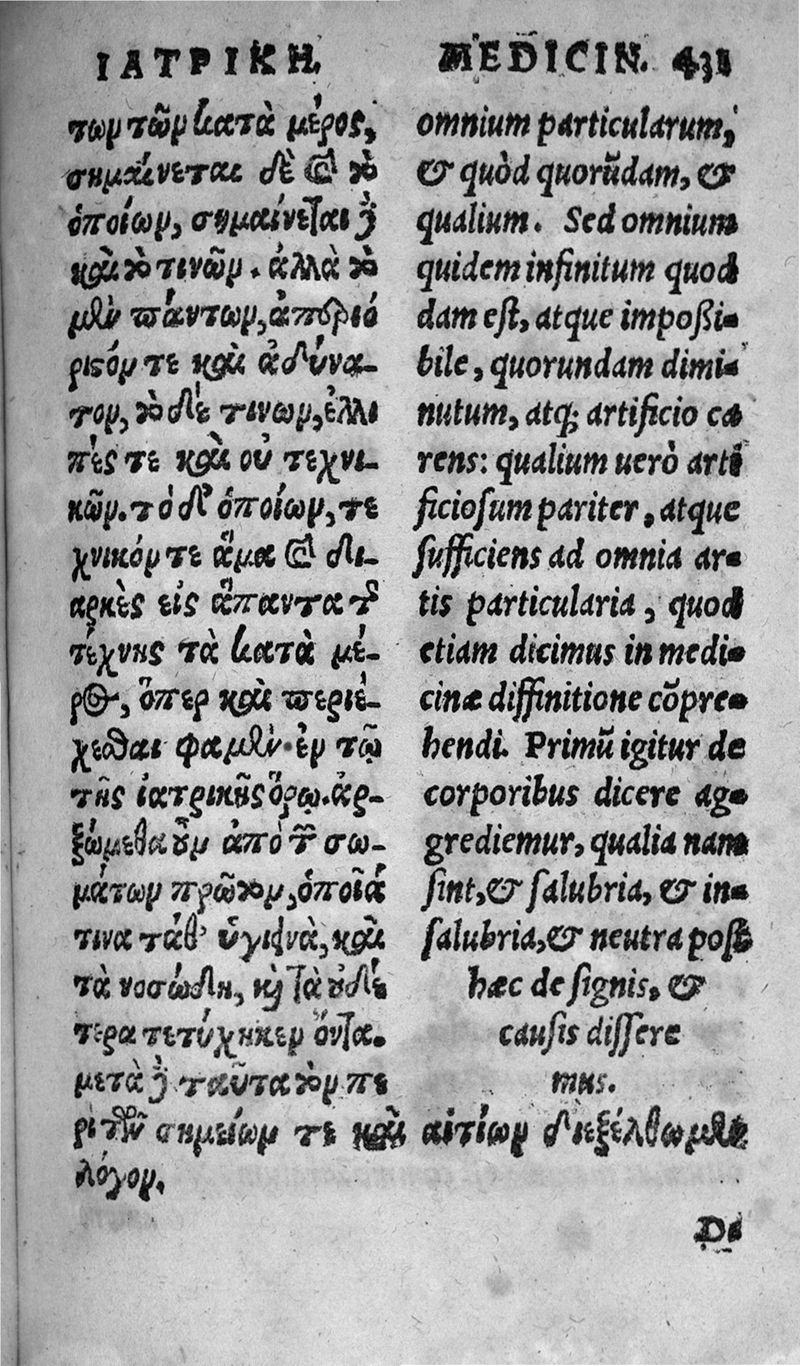 ΙΑΤΡΙΚΗ.
των τῶν κατὰ μέρος,
σημαίνεται δὲ καὶ τὸ
ὁποίων, σημαίνεται δὲ
καὶ τὸ τινῶν. ἀλλὰ τὸ
μὲν πάντων, ἀπεριό
ριστόν τε καὶ ἀδύνα-
τον, τὸ δέ τινων, ἐλλι
πές τε καὶ οὐ τεχνι-
κῶν. τὸ δ' ὁποίων, τε
χνικόν τε ἅμα καὶ δι-
αρκὲς εἰς ἅπαντα τῆς
τέχνης τὰ κατὰ μέ-
ρος, ὅπερ καὶ περιέ-
χεσθαι φαμὲν ἐν τῷ
τῆς ἰατρικῆς ὅρῳ. ἀρ-
ξώμεθα οὖν ἀπὸ τῶν σω-
μάτων πρῶτον, ὁποῖά
τινα τάθ' ὑγιεινὰ, καὶ
τὰ νοσώδη, καὶ τὰ οὐδέ
τερα τετύχηκεν ὄντα.
μετὰ δὲ ταῦτα τὸν πε
ρὶ τῶν σημείων τε καὶ αἰτίων διεξέλθωμεν
λόγον.
MEDICIN. 431
omnium particularum,
& quòd quorũdam, &
qualium. Sed omnium
quidem infinitum quod
dam est, atque impoßi-
bile, quorundam dimi-
nutum, atq; artificio ca
rens: qualium uerò arti
ficiosum pariter, atque
sufficiens ad omnia ar-
tis particularia, quod
etiam dicimus in medi-
cinæ diffinitione cõpre-
hendi. Primũ igitur de
corporibus dicere ag-
grediemur, qualia nam
sint, & salubria, & in-
salubria, & neutra post
hæc de signis, &
causis dissere
mus.
De